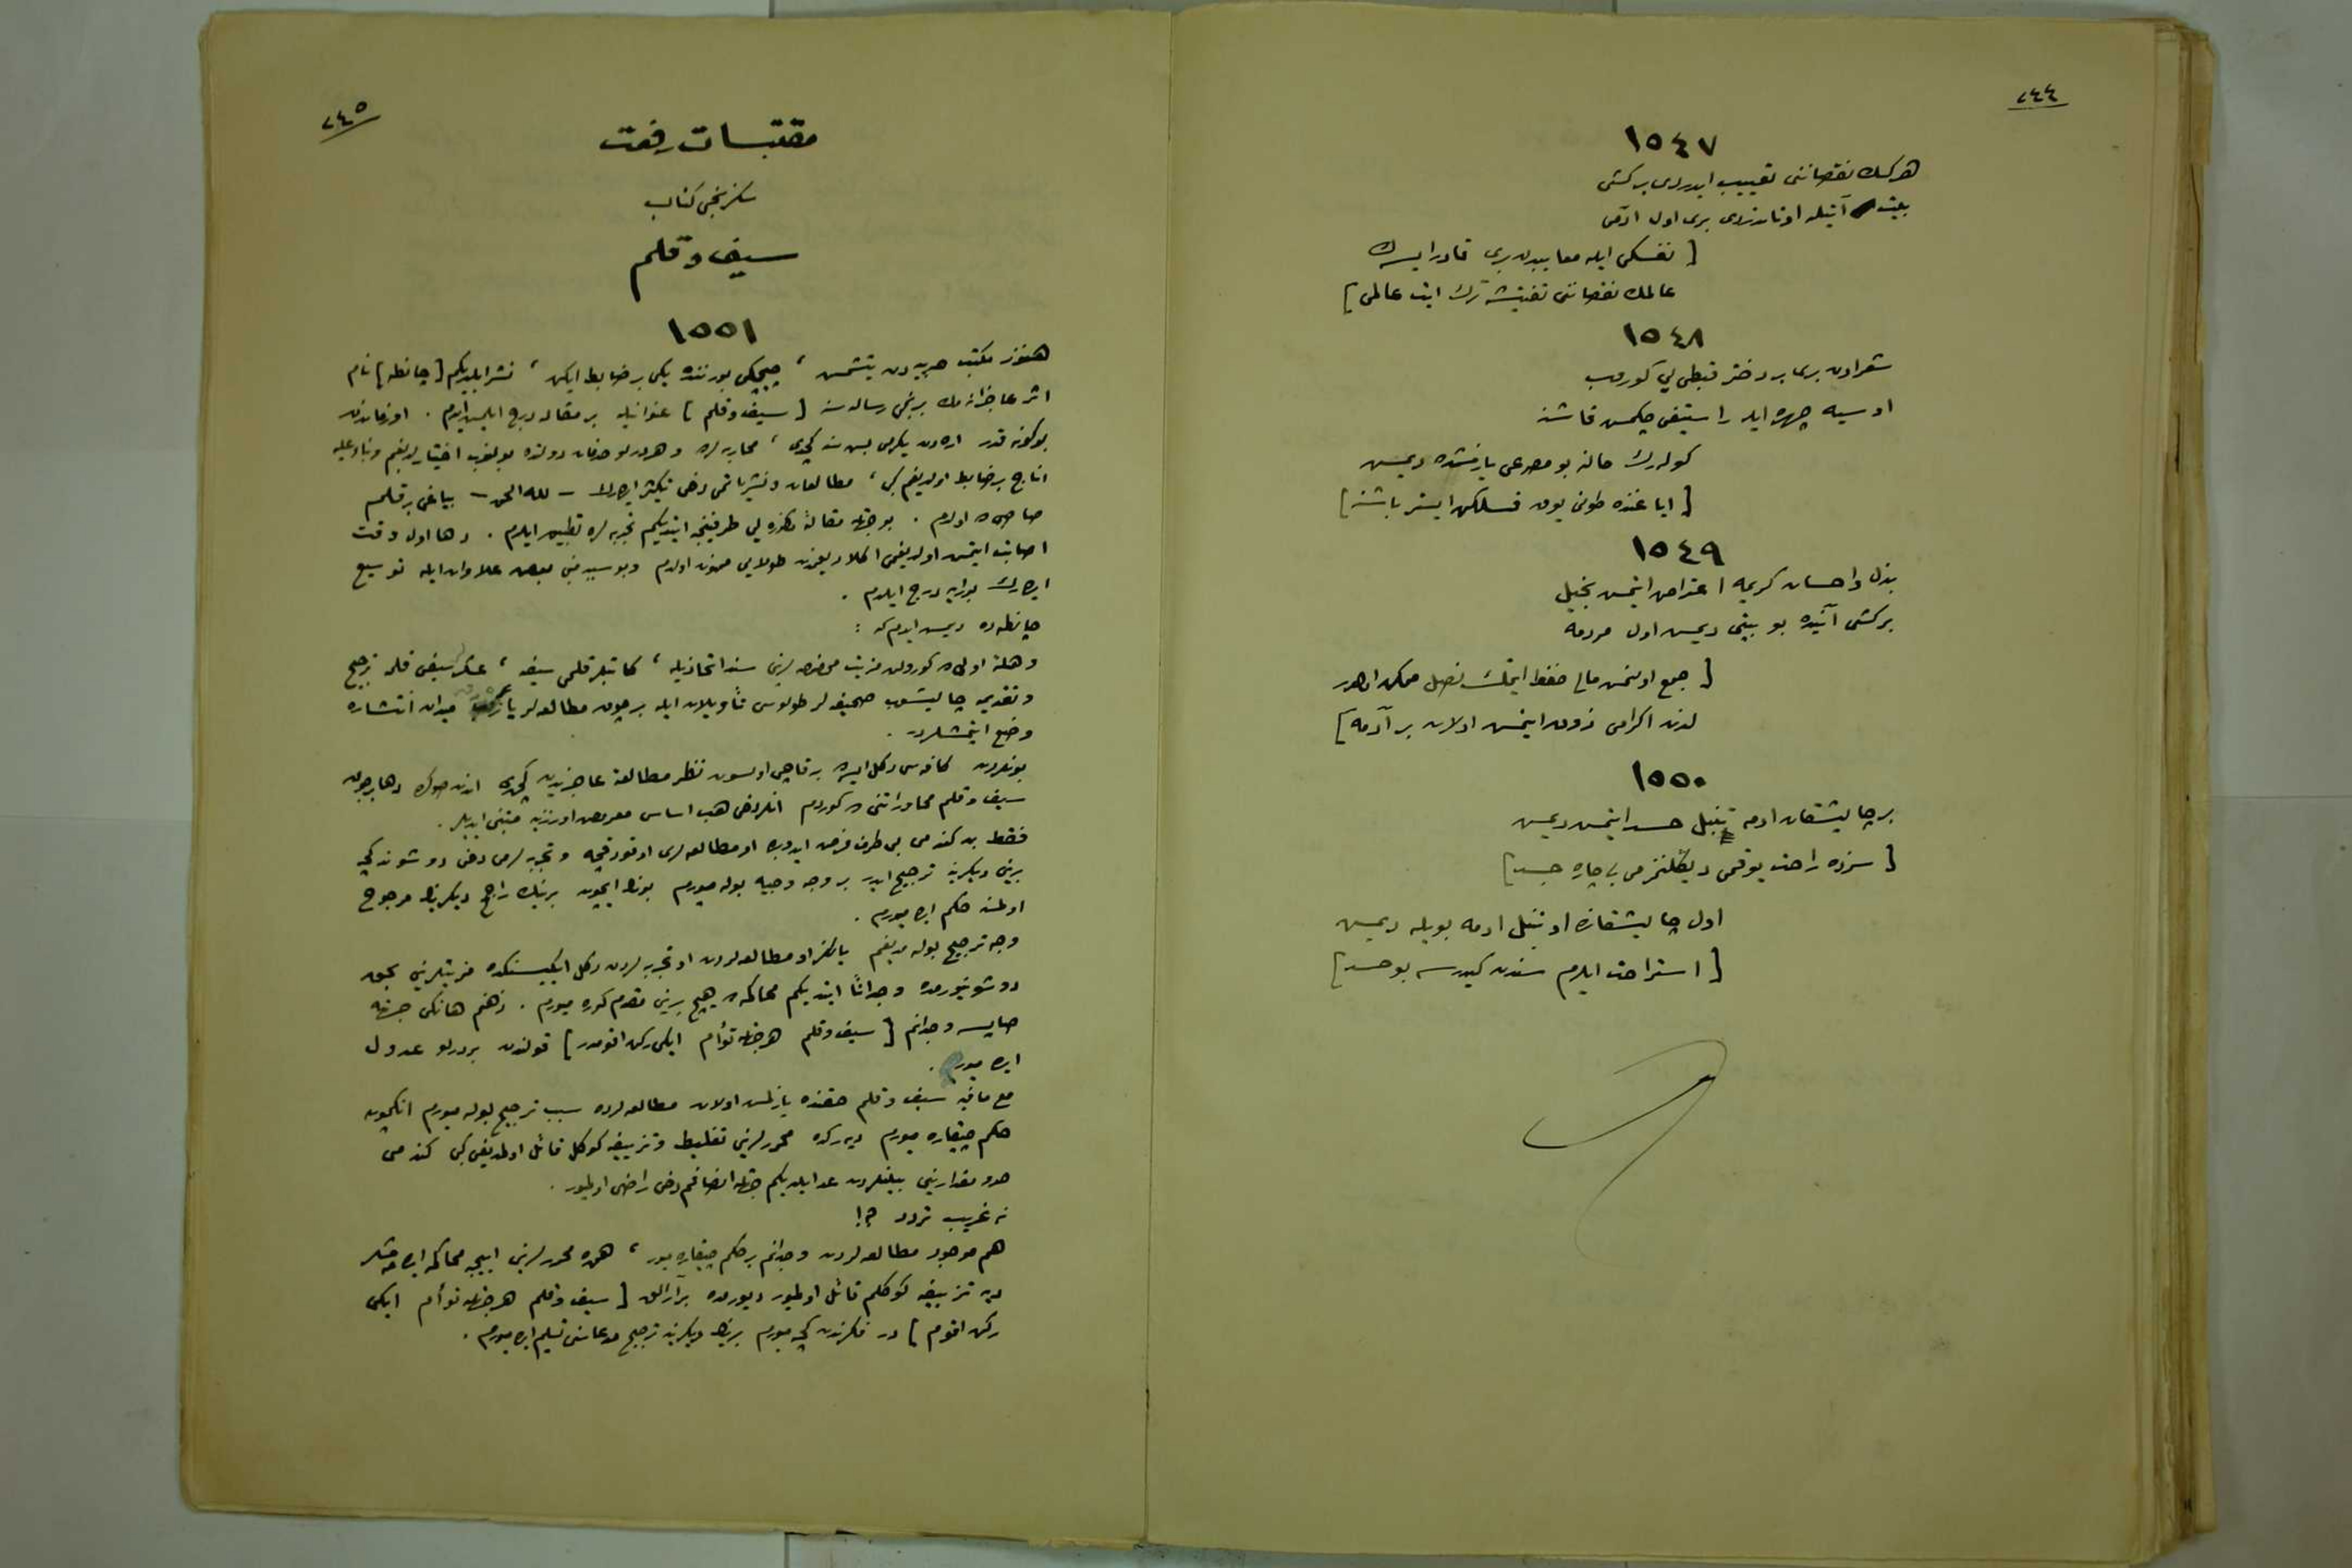 ٢٤٤
١٥٤٧
هركسك نقصاننى تعييب ايدردى بر كشى
بيت آتيله اوتاندردى برى اول آدمى
[ نفسكى ايله معايبدن برى قادر ايسه ك
عالمك نقصاننى تفتيشه ترك ايت عالمى ]
١٥٤٨
شعرادن برى بر دختر قبطى يى كوروب
او سيه چهره ايله راستيقى چكمش قاشنه
كوله رك حالنه بو مصرعى يازمشده ديمش
[ اياغنده طونى يوق فسلكن ايستر باشنه ]
١٥٤٩
بذل واحسان كريمه اعتراض ايتمش بخيل
بر كشى آتيده بو بيتى ديمش اول مردمه
[ جمع اولنمش مالى حفظ ايتمك نصل ممكن اولور
لذت اكرامى ذوق ايتمش اولان بر آدمه ]
١٥٥٠
بر چاليشقان ادمه تنبل حسد ايتمش ديمش
[ سزده راحت يوقمى ديكلنمزمى بى چاره جسد ]
اول چاليشقانده او تنبل ادمه بويله ديمش
[ استراحت ايلرم سندن كيدرسه بو حسد ]
٢٤٥
مقتبسات رفعت
سكزنجى كتاب
سيف و قلم
١٥٥١
هنوز مكتب حربيه دن يتشمش ، چيچكى بورننده يكى بر ضابط ايكن ، نشر ايلديكم [ چانطه ] نام
اثر عاجزانه مك برنجى رساله سنه [ سيف وقلم ] عنوانيله بر مقاله درج ايلمش ايدم . او زماندن
بو كونه قدر اره دن يكرمى بش سنه كچدى ، محاربه لرده وهر درلو خدمات دولتده بولنوب اختيارلديغم وبناء عليه
بر ضابط اولديغم كبى ، مطالعات ونشرياتمى دخى تكثير ايده رك — لله الحمد — بياغى بر قلم
صاحبى ده اولدم . بو جهتله مقالهٔ مذكوره يى طرفينجه ايتديكم تجربه لره تطبيق ايلدم . دها اول وقت
اصابت ايتمش اولديغمى اكلاديغمدن طولايى ممنون اولدم وبو سببدن بعض علاوات ايله توسيع
ايده رك بورايه درج ايلدم .
چانطه ده ديمش ايدم كه :
وهلهٔ اولى ده كورولن مزيت مخصوصه لرينى سند اتخاذيله ، كاتبلر قلمى سيفه ، عسكرلر سيفى قلمه ترجيح
وتقديمه چاليشوب صحيفه لر طولوسى تأويلات ايله بر چوق مطالعه لر يازه رق ميدان انتشاره
وضع ايتمشلردر .
بونلردن كافه سى دكل ايسه ده بر قاچى اولسون نظر مطالعهٔ عاجزيدن كچدى اندن صوكره دها بر چوق
سيف وقلم محاوراتنى ده كوردم انلر دخى هب اساس معروض اوزرينه مبتنى ايديلر .
فقط بن كندمى بى طرف فرض ايدوب ده او مطالعه لرى اوقودقجه وتجربه لرمى دخى دوشوندكجه
برينى ديكرينه ترجيح ايدر بر وجه وجيه بوله ميورم بونك ايچون برينك راجح ديكرينك مرجوح
اولمسنه حكم ايده ميورم .
وجه ترجيح بوله مديغم يالكز او مطالعه لردن او تجربه لردن دكل ايكيسنكده مزيتلرينى بحق
دوشونيورمده وجداناً ايتديكم محاكمه ده هيچ برينى مقدم كوره ميورم . ذهنم هانكى جهته
صاپسه وجدانم [ سيف وقلم هر جهتله توأم ايكى ركن اقومدر ] قولندن بر درلو عدول
ايده ميور .
مع مافيه سيف وقلم حقنده يازلمش اولان مطالعه لرده سبب ترجيح بوله ميورم انكچون
حكم چيقاره ميورم ديه ركده محررلرينى تغليط وتزييفه كوكل قائل اولمديغى كبى كندمى
حد ومقدارينى بيلنلردن عد ايلديكم جهتله انصافم دخى راضى اوليور .
نه غريب تردد ؟!
هم موجود مطالعه لردن وجدانم بر حكم چيقاره ميور ، همده محررلرينى ايجه محاكمه ايده مه مشلر
ديه تزييفه كوكلم قائل اوليور ديورمده بر آرالق [ سيف وقلم هر جهتله توأم ايكى
ركن اقوم ] در فكرندن كچه ميورم برينك ديكرينه ترجيح مدعاسنى تسليم ايده ميورم .